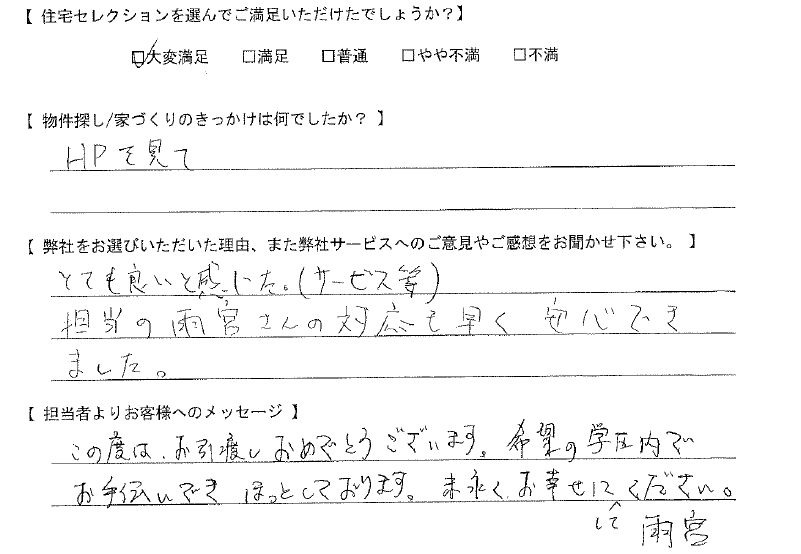 【 住宅セレクションを選んでご満足いただけたでしょうか？】
☑大変満足 □満足 □普通 □やや不満 □不満
【 物件探し/家づくりのきっかけは何でしたか？ 】
HPを見て
【 弊社をお選びいただいた理由、また弊社サービスへのご意見やご感想をお聞かせ下さい。 】
とても良いと感じた。(サービス等)
担当の雨宮さんの対応も早く 安心でき
ました。
【 担当者よりお客様へのメッセージ 】
この度は、お引渡しおめでとうございます。希望の学区内で
お手伝いでき ほっとしております。末永く、お幸せにください。
して 雨宮